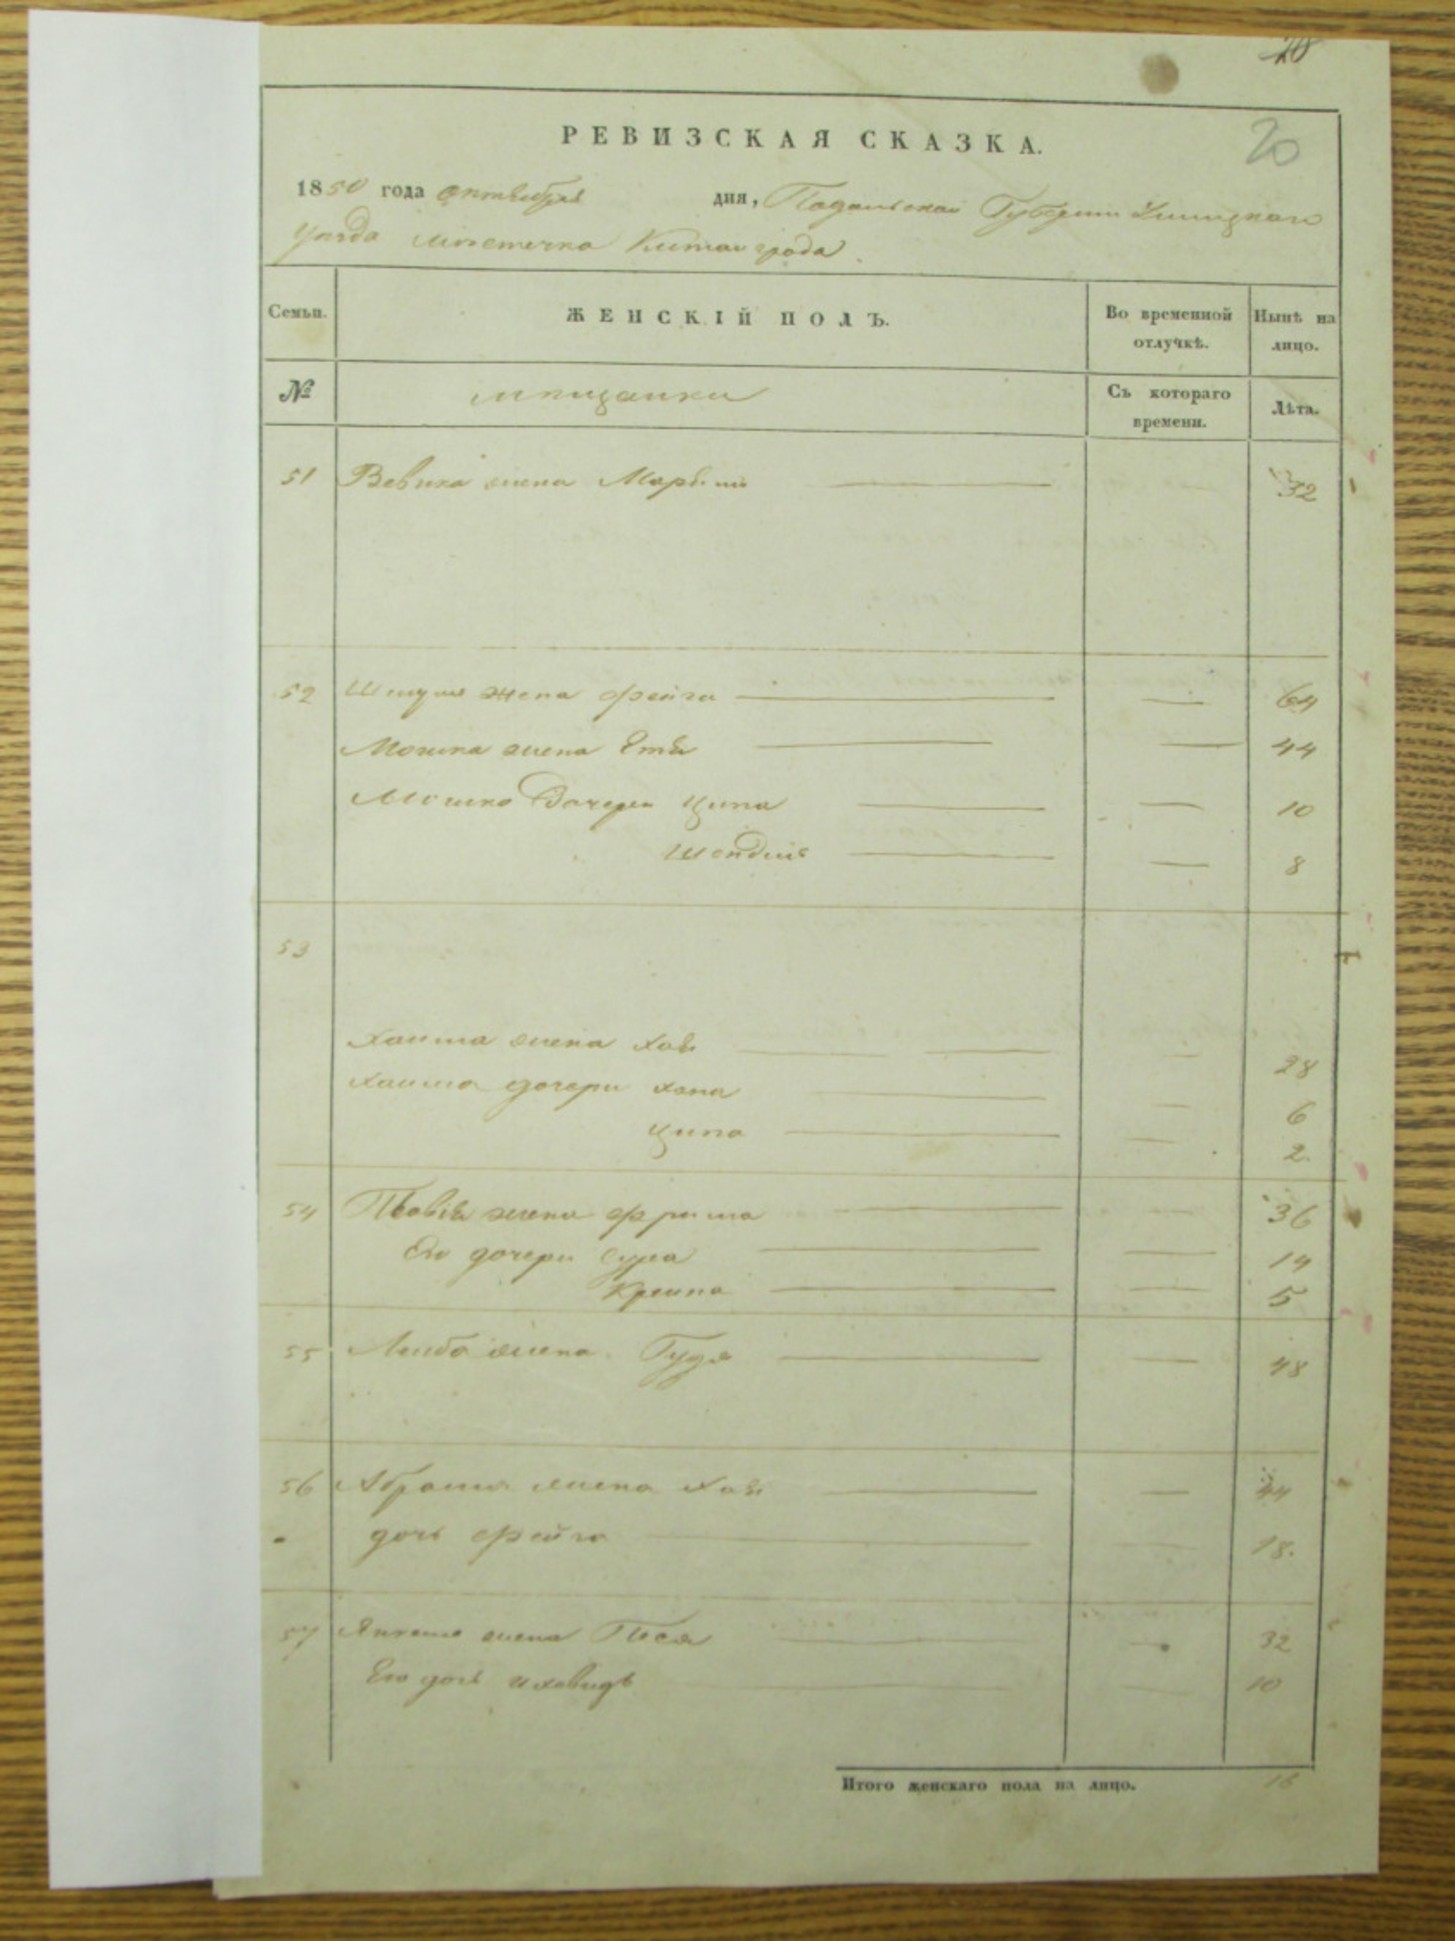 20
РЕВИЗСКАЯ СКАЗКА.
20
1850 года октября дня, Подольской Губернии Ушицкаго
уезда местечка Китайгорода
Семьи.
ЖЕНСКІЙ ПОЛЪ.
Во временной отлучкѣ.
Нынѣ на лицо.
№
мещанки
Съ котораго времени.
Лѣта.
51 жена 32
52 жена Фейга 64
Мошка жена 44
Мошка дочери Ципа 10
8
53
Хаима жена Хая 28
Хаима дочери Хана 6
Ципа 2.
54 жена Фрима 36
Его дочери Сура 14
Креина 5
55 Лейба жена 48
56 Абрама жена Хая 44
дочь Фейга 18.
57 Янкеля жена Песя 32
Его дочь 10
Итого женскаго пола на лицо. 16